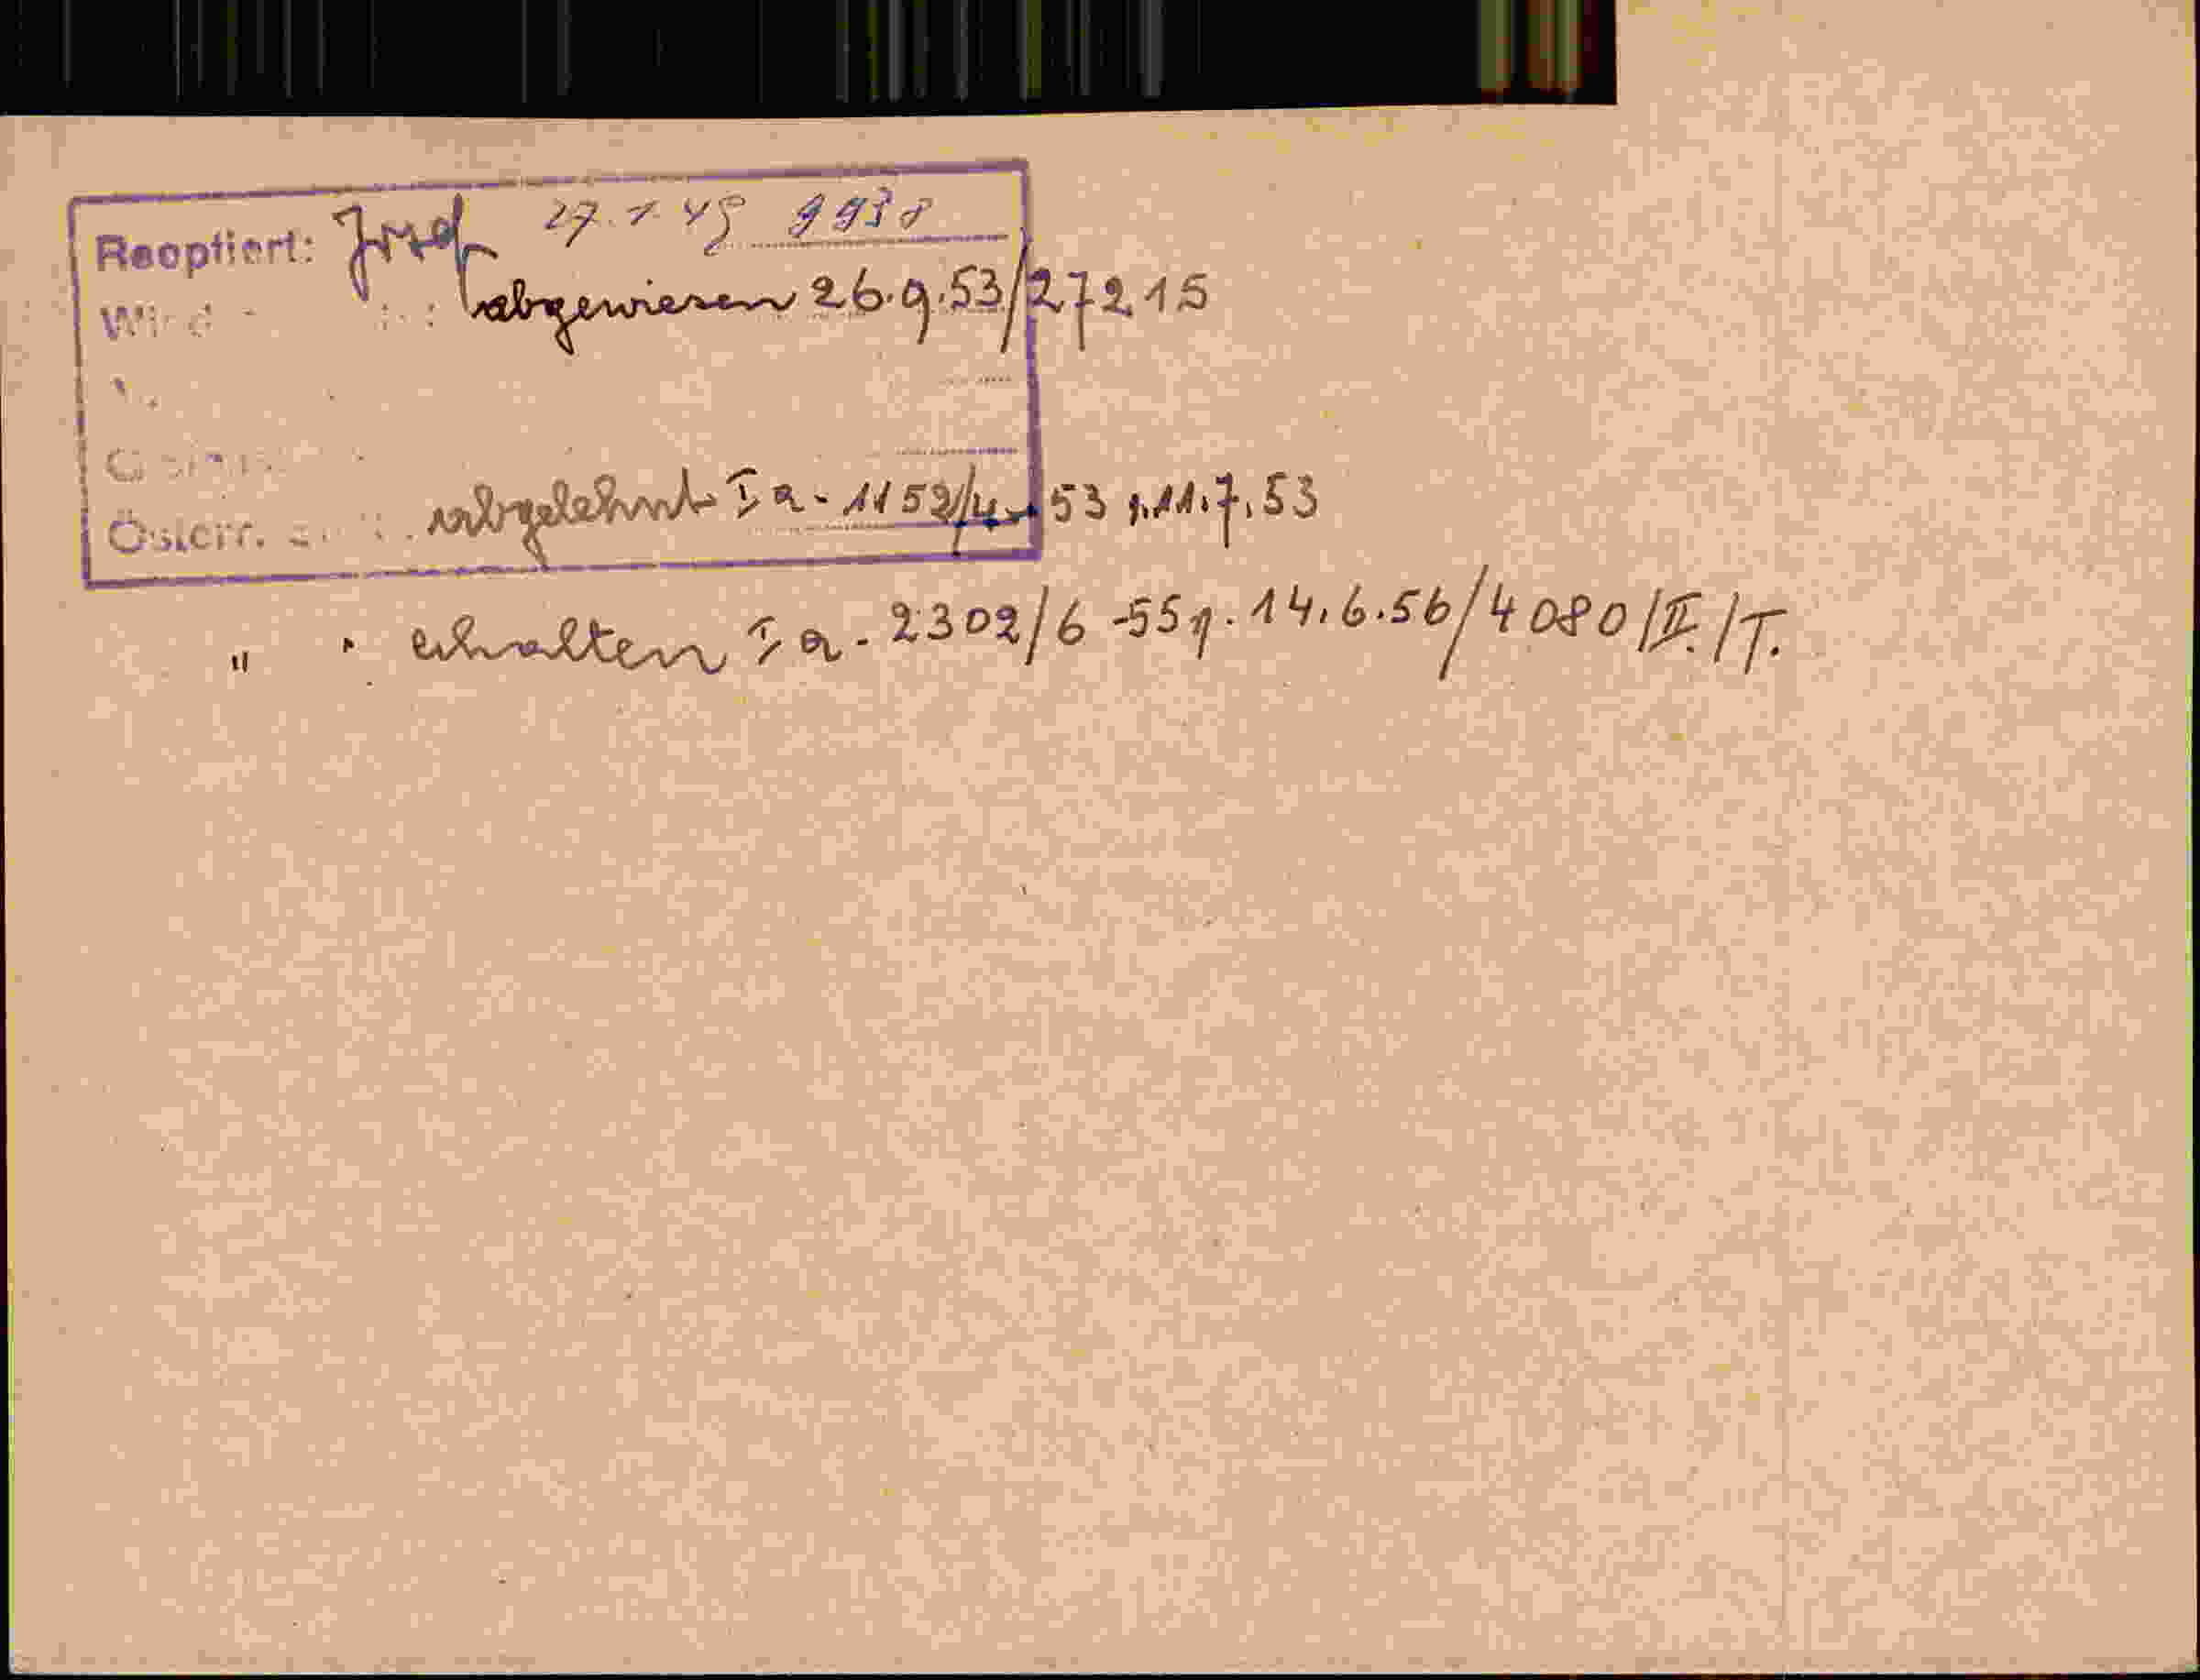 Reoptiert: Josef 27.1.49 9938
Wird abgewiesen 26.9.53/27215
Österr. abgelehnt Ia-1152/4-53 v.11.7.53
" erhalten Ia-2302/6-55 v. 14.6.56/4080/II./T.